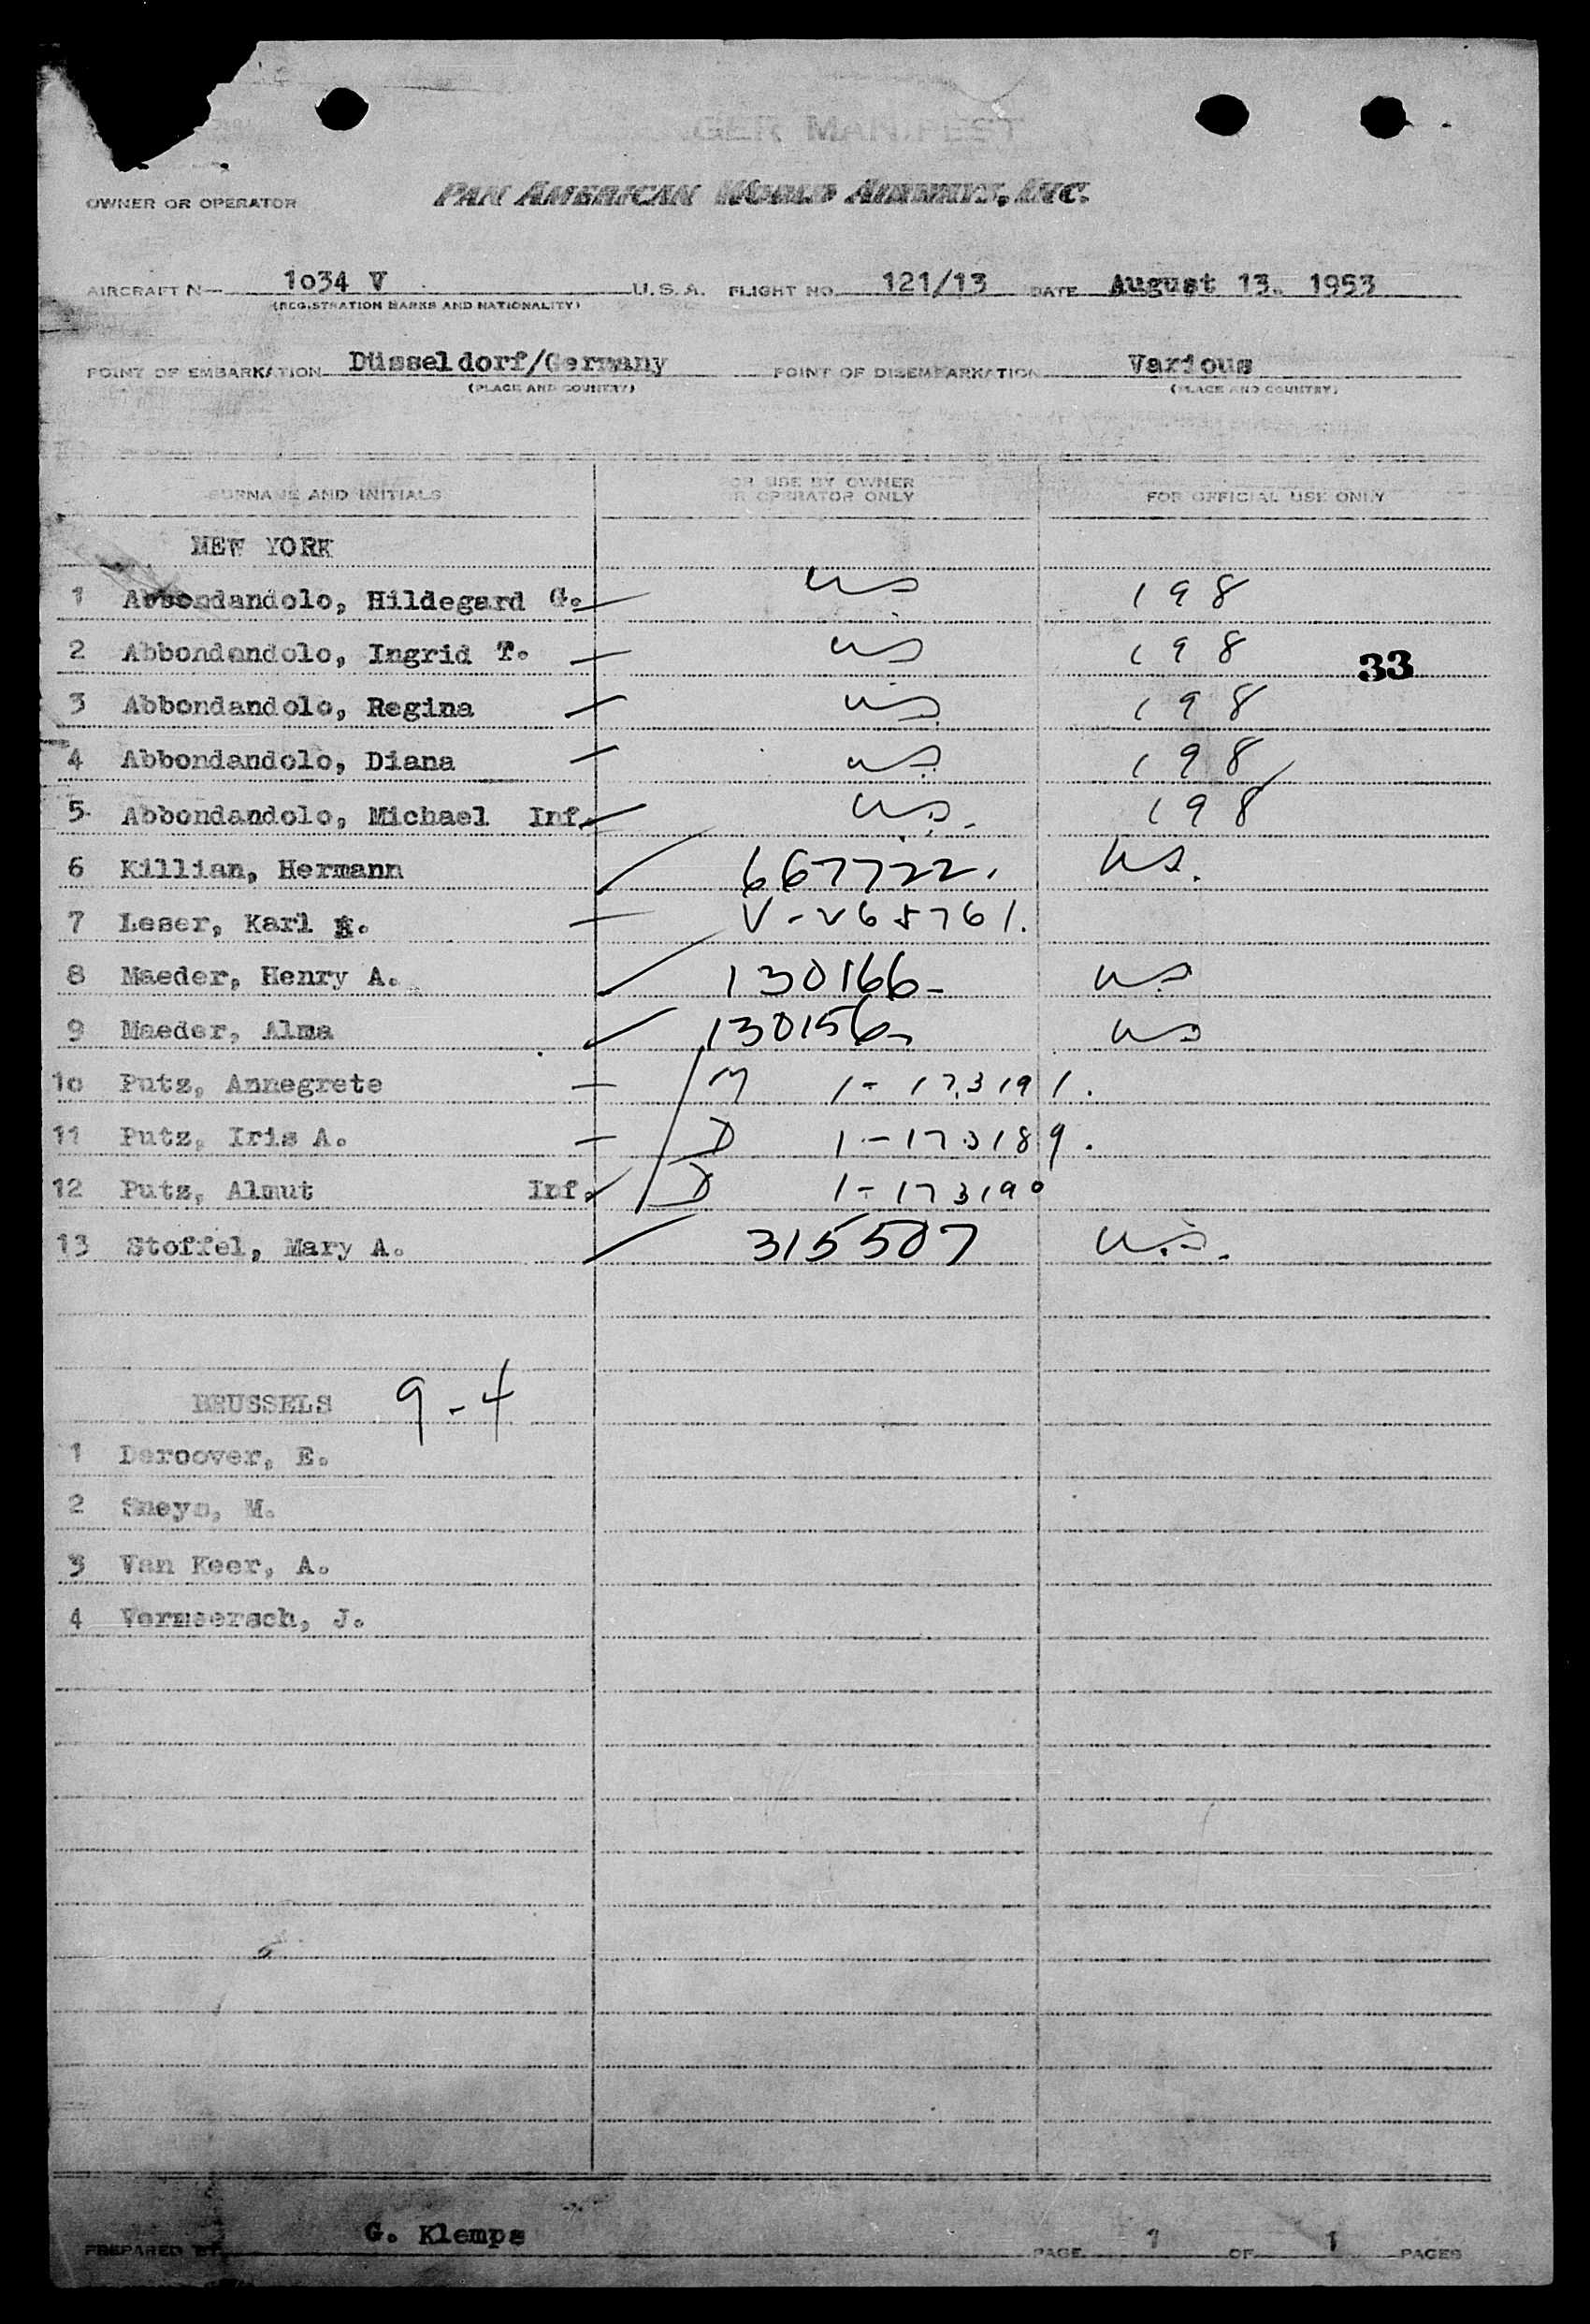 PASSENGER MANIFEST
OWNER OR OPERATOR PAN AMERICAN WORLD AIRWAYS, INC.
AIRCRAFT N— 1o34 V U.S.A. FLIGHT NO. 121/13 DATE August 13. 1953
(REGISTRATION MARKS AND NATIONALITY)
POINT OF EMBARKATION Düsseldorf/Germany POINT OF DISEMBARKATION Various
(PLACE AND COUNTRY) (PLACE AND COUNTRY)
SURNAME AND INITIALS FOR USE BY OWNER OR OPERATOR ONLY FOR OFFICIAL USE ONLY
NEW YORK
1 Abbondandolo, Hildegard G. — US 198
2 Abbondandolo, Ingrid T. — US 198 33
3 Abbondandolo, Regina — US. 198
4 Abbondandolo, Diana — US. 198
5. Abbondandolo, Michael Inf. U.S. 198
6 Killian, Hermann 667722. US.
7 Leser, Karl K. — V-265761.
8 Maeder, Henry A. 130166- US
9 Maeder, Alma 130156- US
1o Putz, Annegrete — M 1-173191.
11 Putz, Iris A. — D 1-173189.
12 Putz, Almut Inf. D 1-173190
13 Stoffel, Mary A. 315507 U.S.
BRUSSELS 9-4
1 Deroover, E.
2 Sneys, M.
3 Van Keer, A.
4 Vermeersch, J.
PREPARED BY G. Klemps PAGE 1 OF 1 PAGES